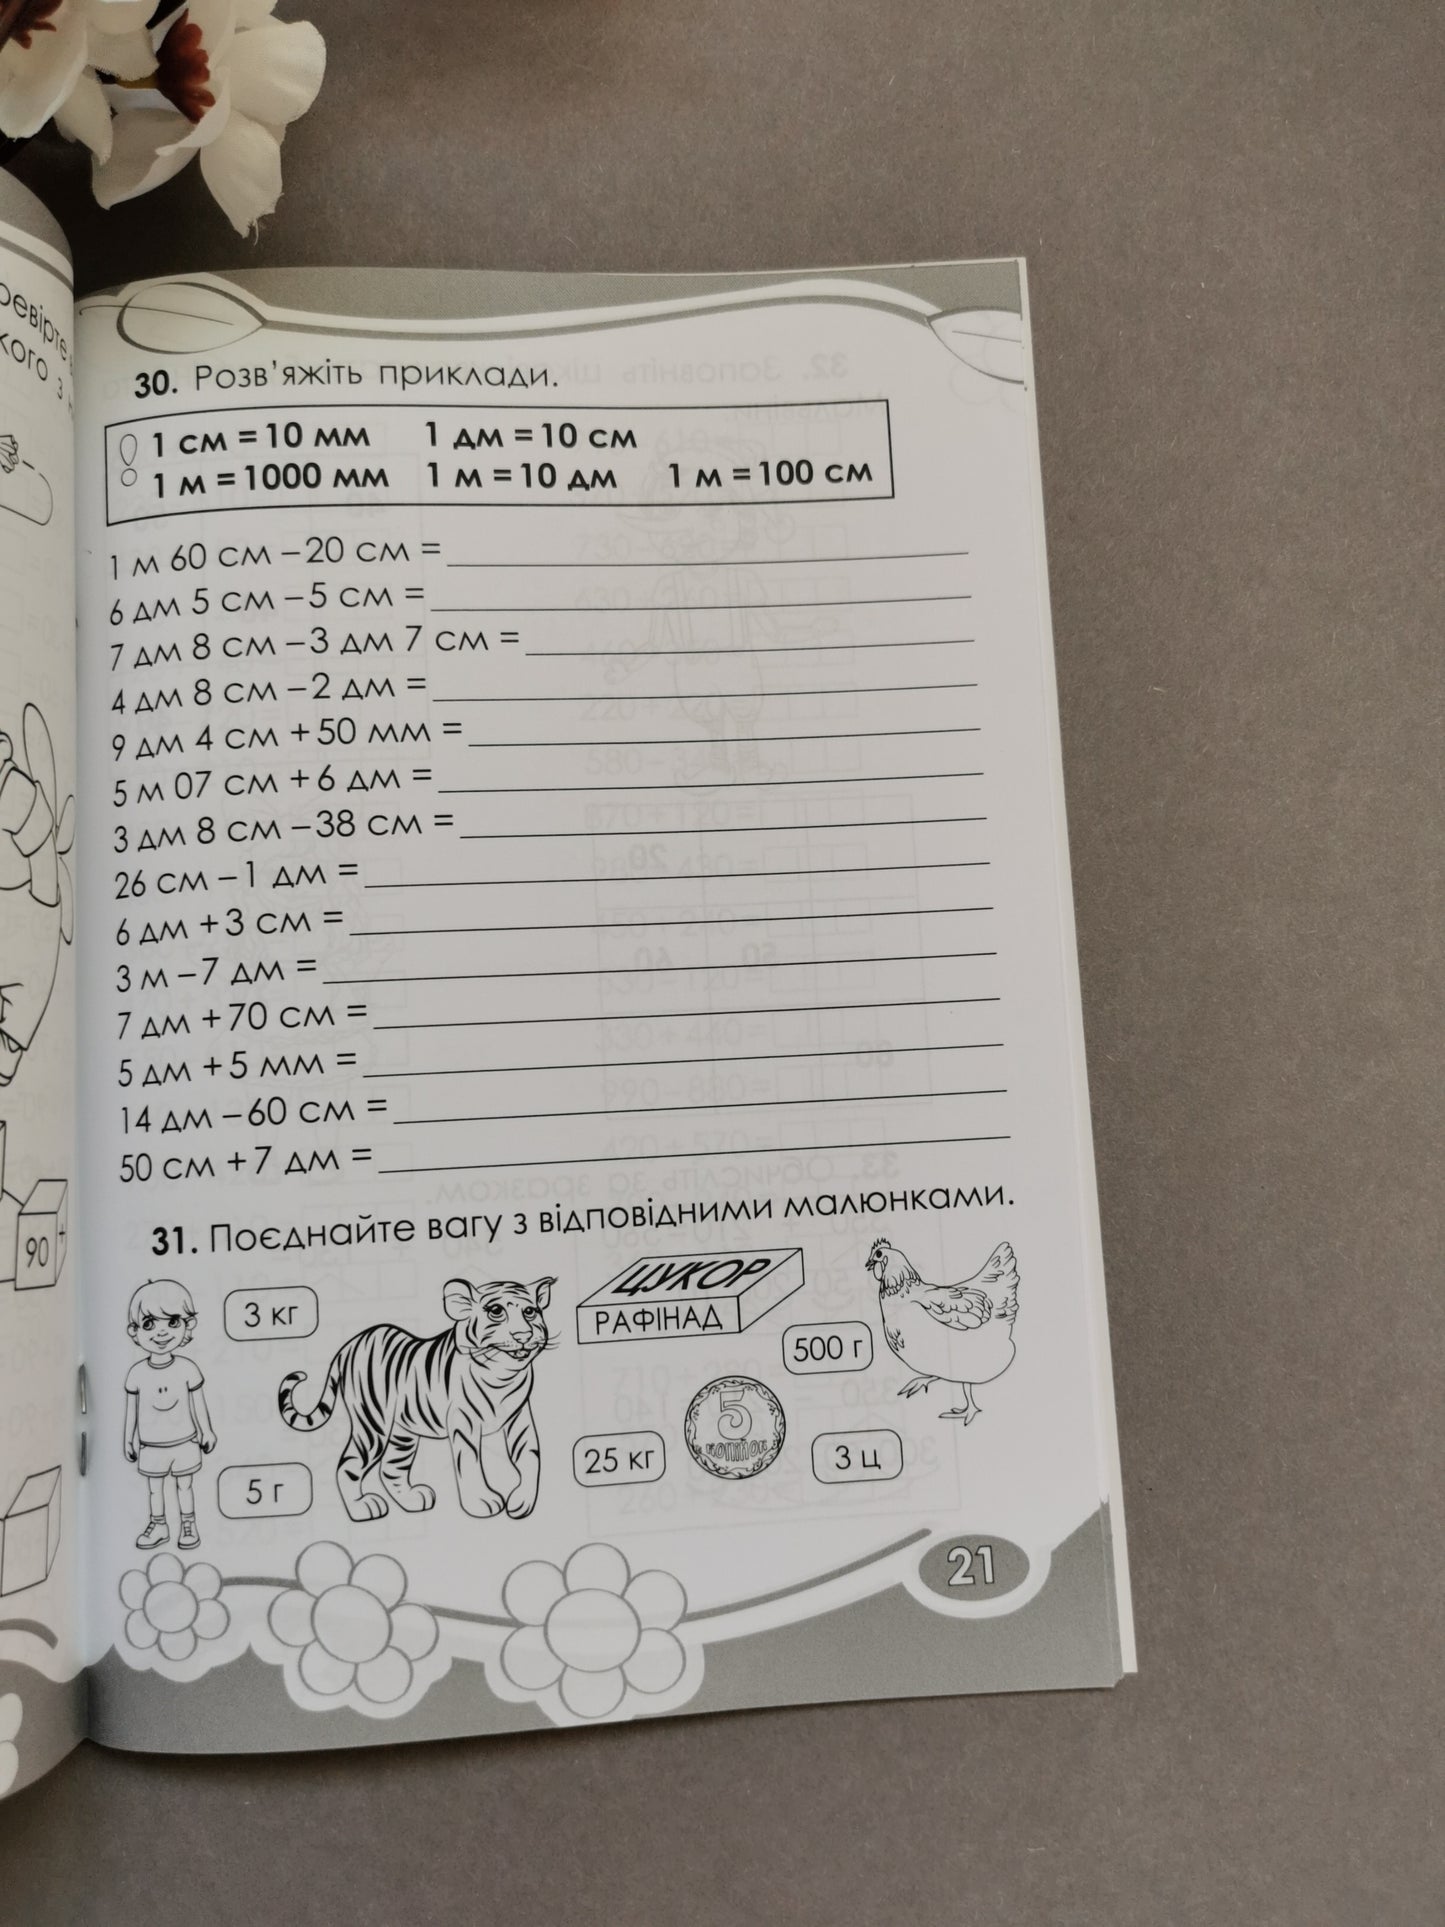 30. Розв'яжіть приклади.
1 см = 10 мм 1 дм = 10 см
1 м = 1000 мм 1 м = 10 дм 1 м = 100 см
1 м 60 см – 20 см =
6 дм 5 см – 5 см =
7 дм 8 см – 3 дм 7 см =
4 дм 8 см – 2 дм =
9 дм 4 см + 50 мм =
5 м 07 см + 6 дм =
3 дм 8 см – 38 см =
26 см – 1 дм =
6 дм + 3 см =
3 м – 7 дм =
7 дм + 70 см =
5 дм + 5 мм =
14 дм – 60 см =
50 см + 7 дм =
90
31. Поєднайте вагу з відповідними малюнками.
3 кг
ЦУКОР
РАФІНАД
500 г
5
КОПІЙОК
25 кг
3 ц
5 г
21